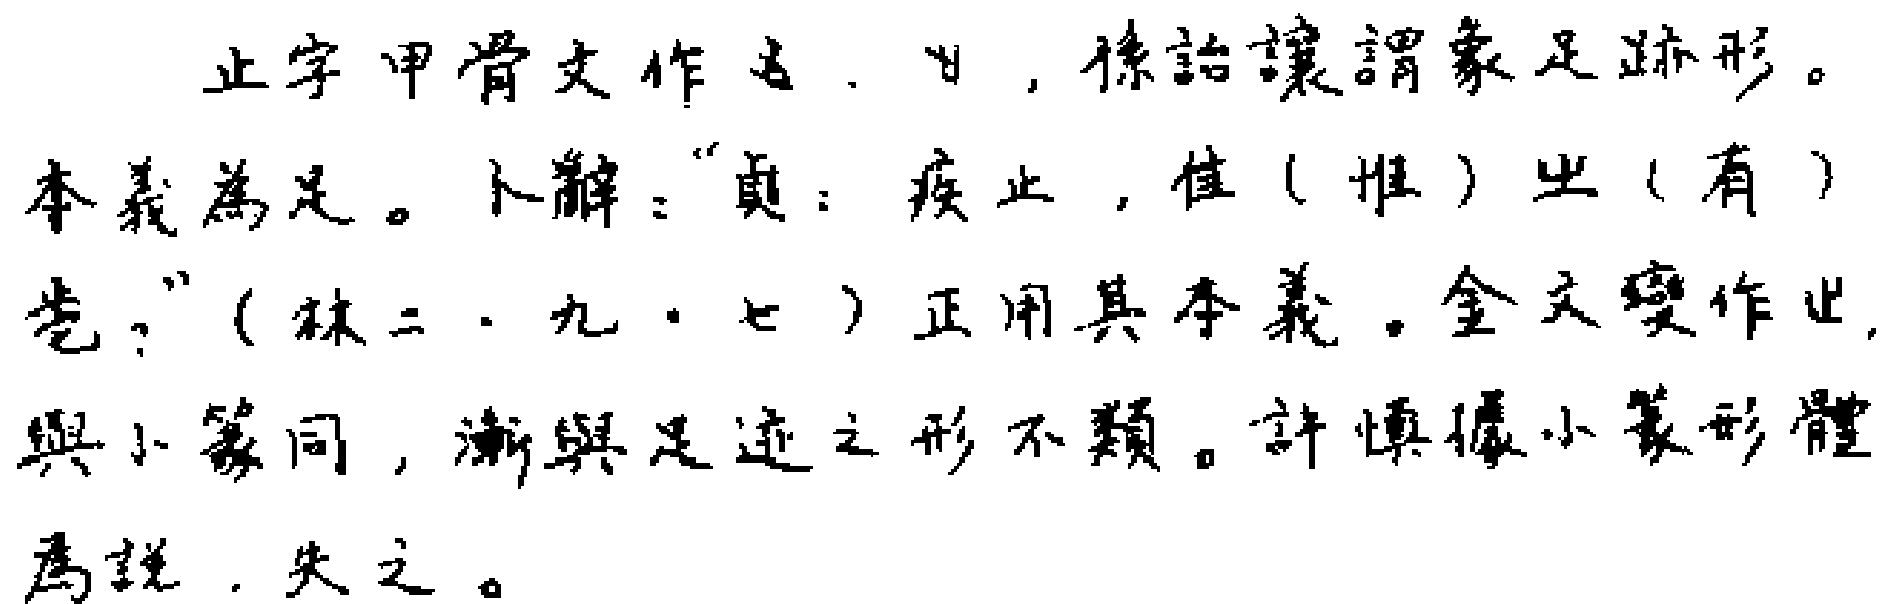 止字甲骨文作、,孫詒讓謂象足跡形。
本義為足。卜辭:“貞:疾止,隹(惟)㞢(有)
𡆥?”(林二·九·七)正用其本義。金文變作止,
與小篆同,漸與足迹之形不類。許慎據小篆形體
為說,失之。